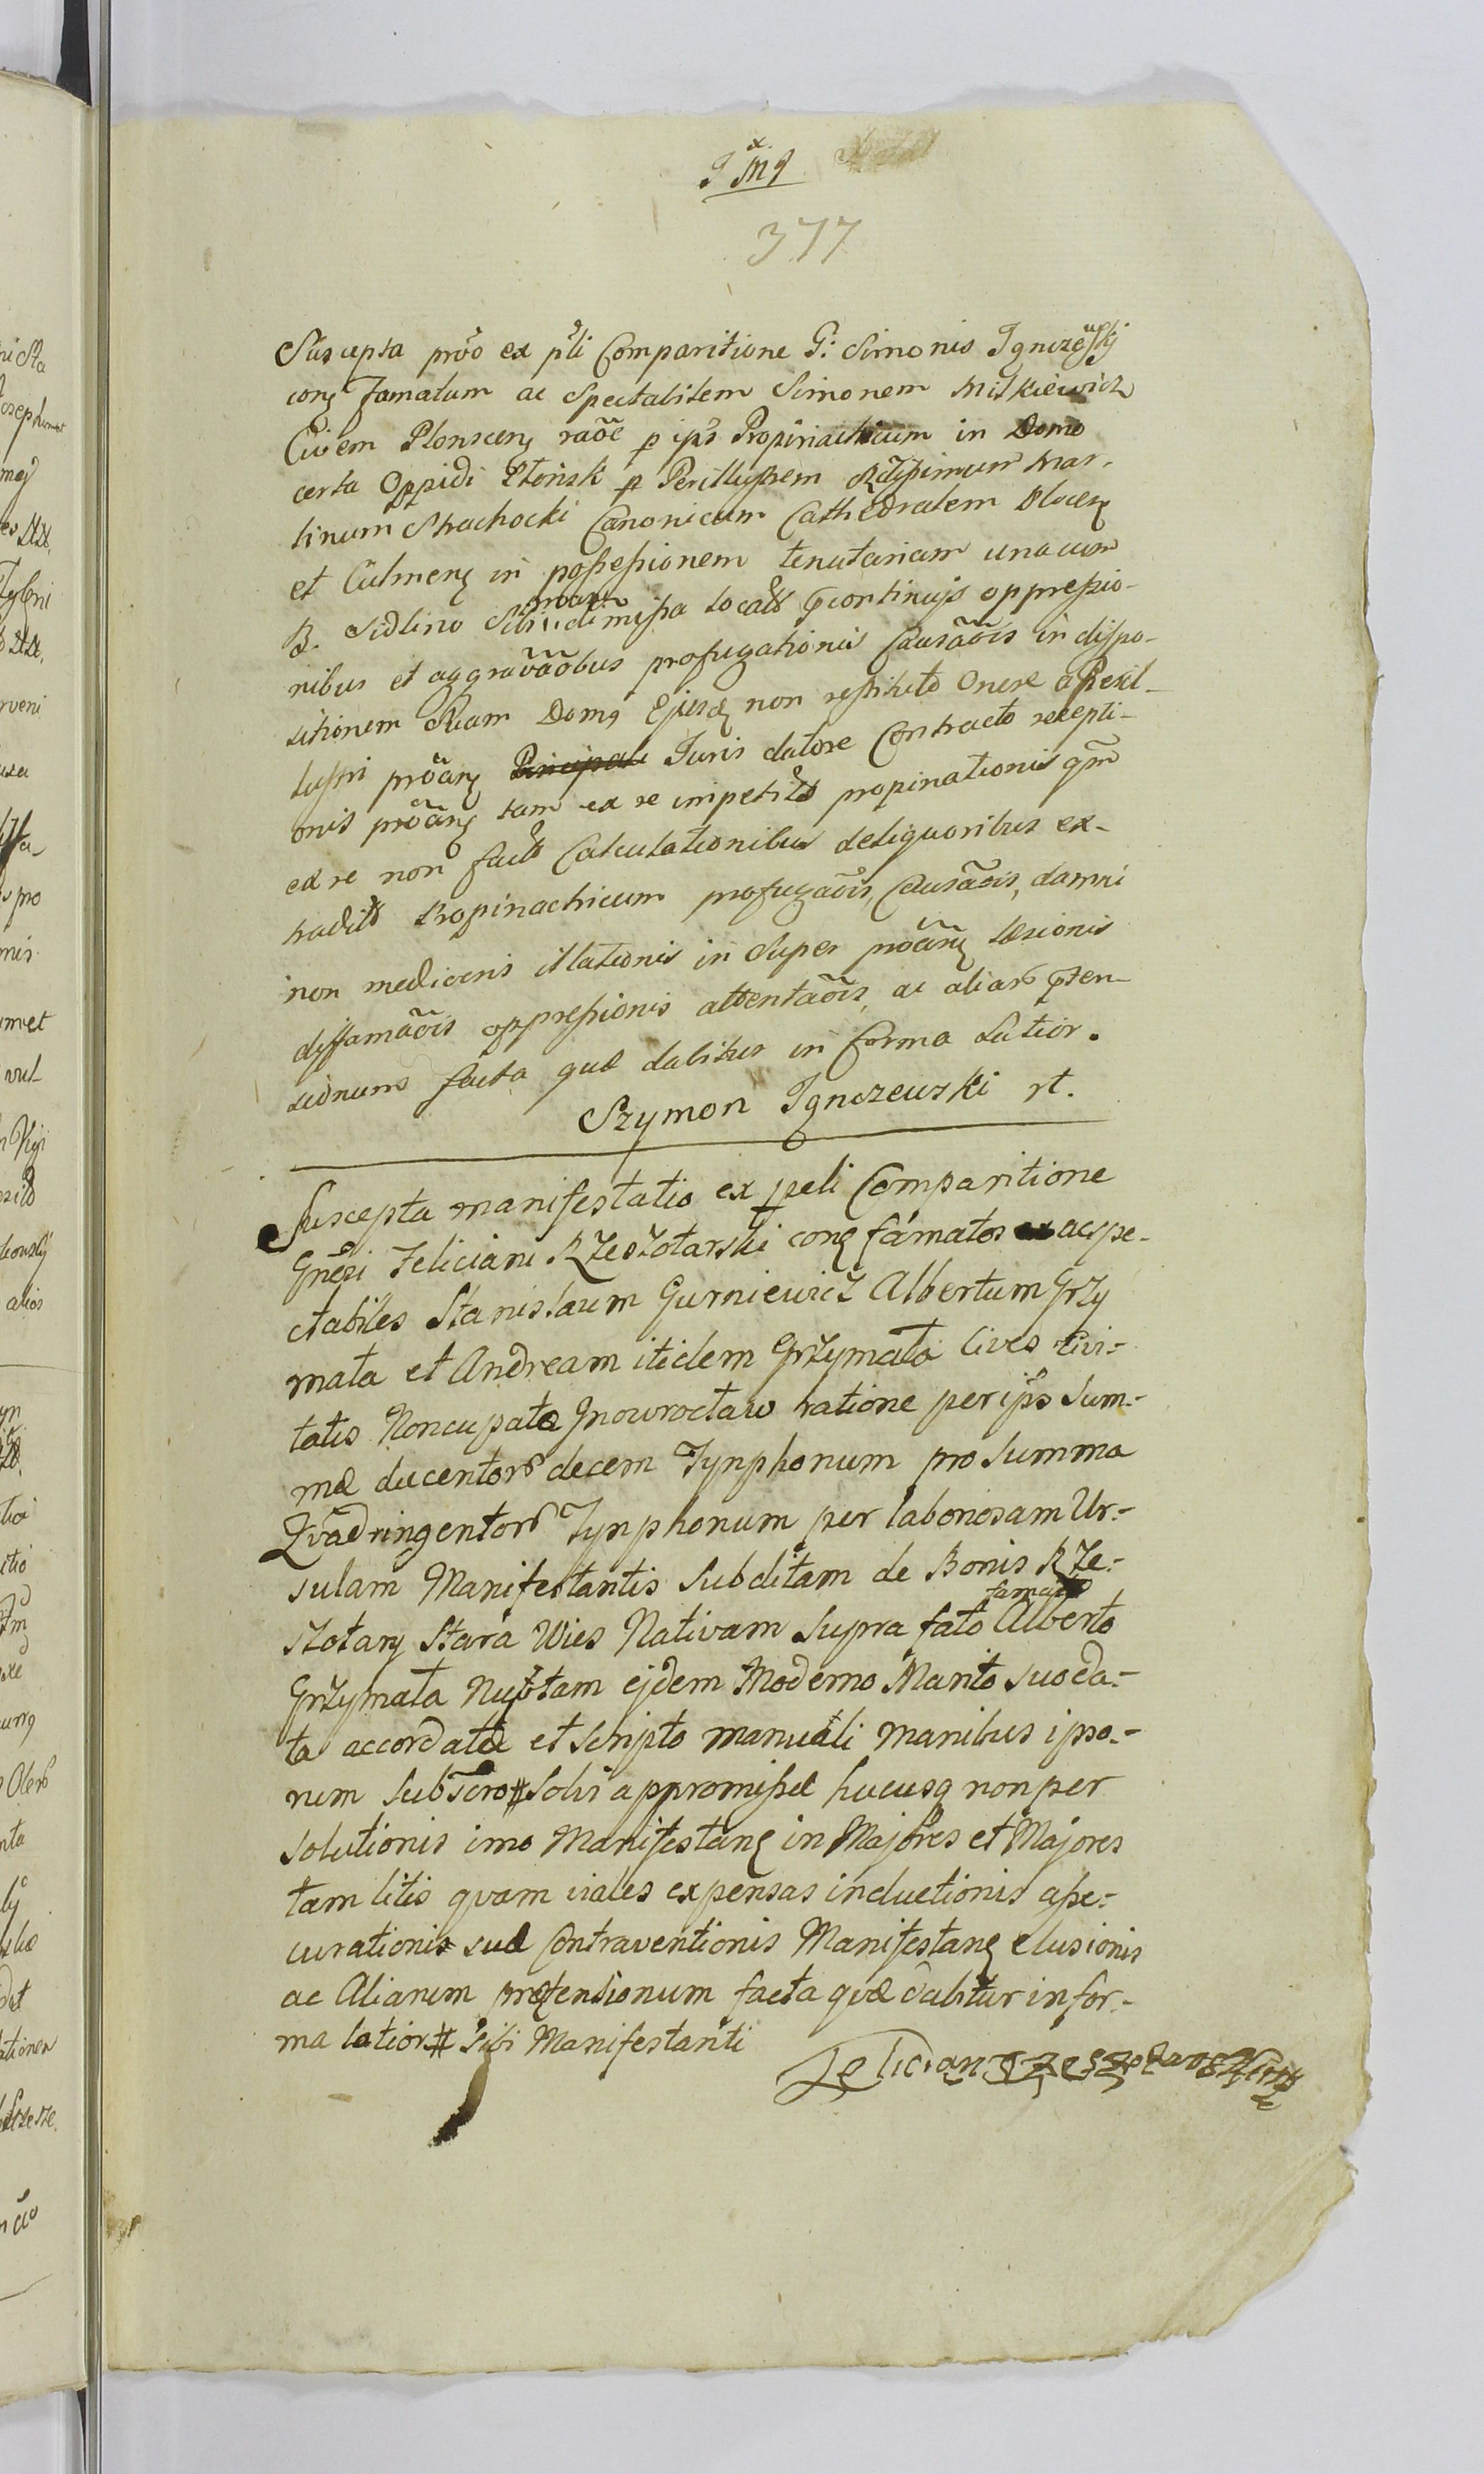 377
Suscepta prõo ex pĩi Comparitione G: Simonis Ignczewskij
conȝ Famatum ac Spectabilem Simonem Mitkiewicz
Civem Plonscenȝ raõe p ips Propinatricum in Domo
certa Oppidi Płońsk p Perillustrem Rdissimum Mar-
tinum Strachocki Canonicum Cathedralem Plocenȝ
et Culmenȝ in possessionem tenutariam una cum
B. Sidlino Sibi dimissa locats continujs oppressio-
nibus et aggravãõbus profugationis causãõis in dispo-
sitionem suam Domq Ejusdȝ non restituto Onere a Peril-
lustri prõanȝ Principali Juris datore Contracto recepti-
onis prõanȝ tam ex re impetits propinationis qm
ex re non facts Calculationibus de liquoribus ex-
tradits Propinatricum profugaõis, Causãõis, damni
non mediocris illationis in super prõanȝ læsionis
diffamãõis oppressionis attentaõis, ac aliar prten-
sionum facta quæ dabitur in forma Latior.
Szymon Ignczewski rt.
Suscepta manifestatio ex pseli Comparitione
Gnesi Feliciani Rzeszotarski conȝ fámatos ac spe-
ctabiles Stanislaum Gurniewicz Albertum Grzy
mała et Andream itidem Grzymała Cives Civi-
tatis Noncupatæ Inowrocław ratione per ips Sum-
mæ ducentor decem Tynphonum pro Summa
Qvadringentor Tynphonum per laboriosam Ur-
sulam Manifestantis Subditam de Bonis RZe-
szotarȝ Stara Wies Nativam Supra fato famato Alberto
Grzymała Nuptam ejdem Moderno Marito suo da-
ta accordatæ et Scripto manuali manibus ipso-
rum Subscro # Solvi appromissæ hucusq non per
solutionis imo Manifestanȝ in Majores et Majores
tam litis qvam viales expensas inductionis asse-
curationis suæ Contraventionis Manifestanȝ elusionis
ac Aliarum prætensionum facta qvæ dabitur in for-
ma latior. # Sibi Manifestanti
Felician Rzeszotarski